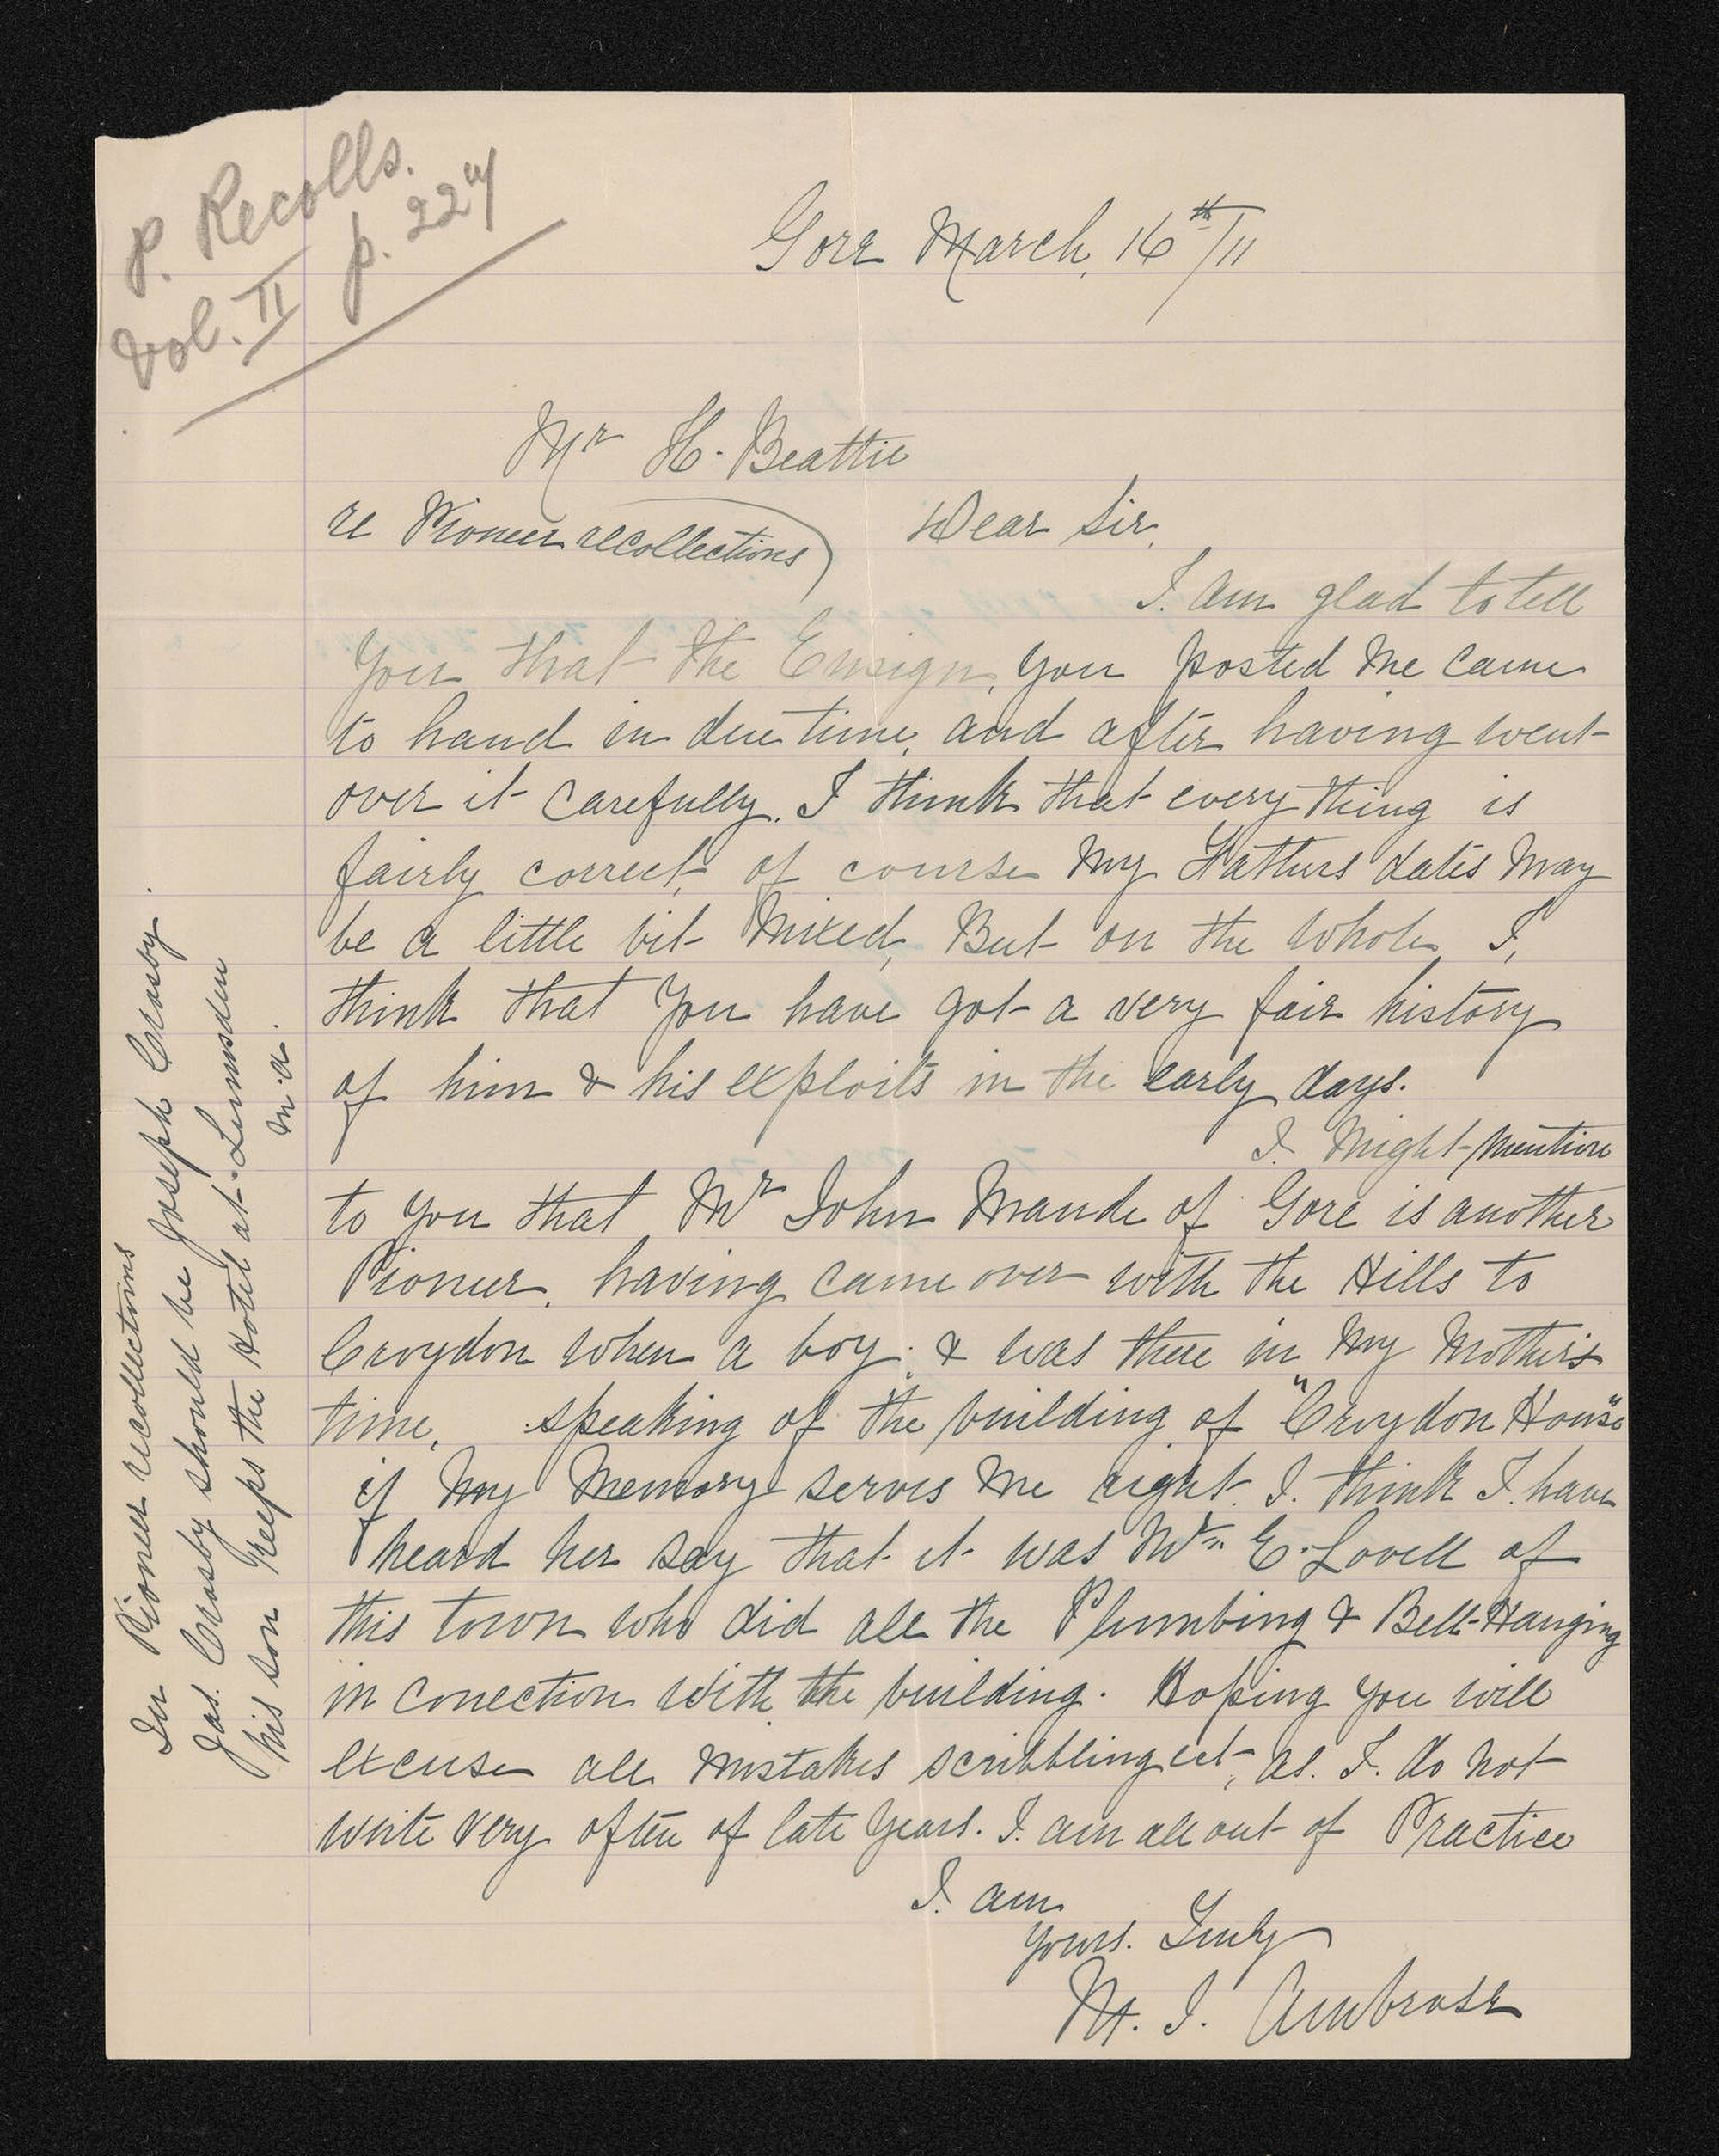 P. Recolls.
Vol. II p. 224
Gore March, 16th/11
Mr H. Beattie
re Pioneer recollections) Dear Sir,
I. am glad to tell
You that the Ensign, you posted me came
to hand in due time, and after having went
over it carefully. I think that every thing is
fairly correct, of course my Fathers dates may
be a little bit mixed, But on the whole, I,
think that you have got a very fair history
of him & his exploits in the early days.
I. might mention
to you that Mr John Maude of Gore is another
Pioneer. having came over with the Hills to
Croydon when a boy; & was there in my Mothers
time, speaking of the building of "Croydon House"
if my memory serves me right. I. think I. have
heard her say that it was Mr E. Lovell of
this town who did all the Plumbing & Bell-Hanging
in conection with the building. Hoping you will
excuse all mistakes scribbling ect, as. I. do not
write very often of late years. I. am all out of Practice
I. am
Yours. Truly
M. J. Ambrose
In Pioneer recollections
Jas. Crosby should be Joseph Crosby.
his son keeps the Hotel at Lumsden
m.a.